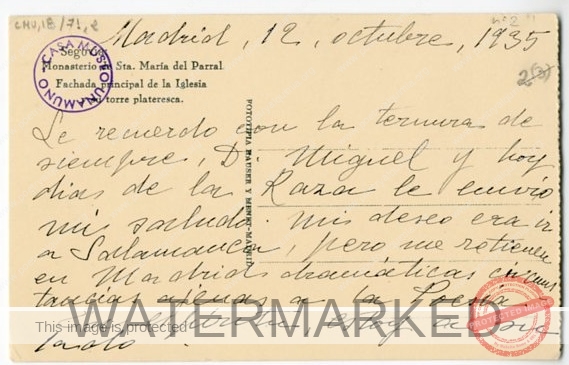 CMU, 18/71, 2
nº 2
Madrid, 12, octubre, 1935
Segovia
Monasterio de Sta. María del Parral
Fachada principal de la Iglesia
torre plateresca.
CASA MUSEO UNAMUNO
2
FOTOTIPIA HAUSER Y MENET.-MADRID
Le recuerdo con la ternura de
siempre, D. Miguel y hoy
dias de la Raza le envio
mi saludo. Mis deseo era ir
a Salamanca, pero me retienen
en Madrid dramáticas circuns
tancias ajenas a la Poesia
WATERMARKED
This image is protected
PROTECTED IMAGE